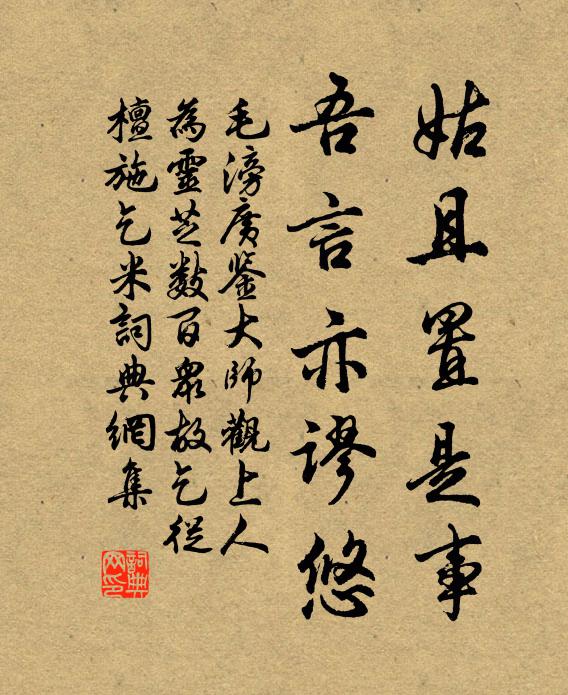 姑且置是事
吾言亦謬悠
毛滂廣鉴大師觀上人
為靈芝数百衆故乞從
檀施乞米詞典網集
詞典网印